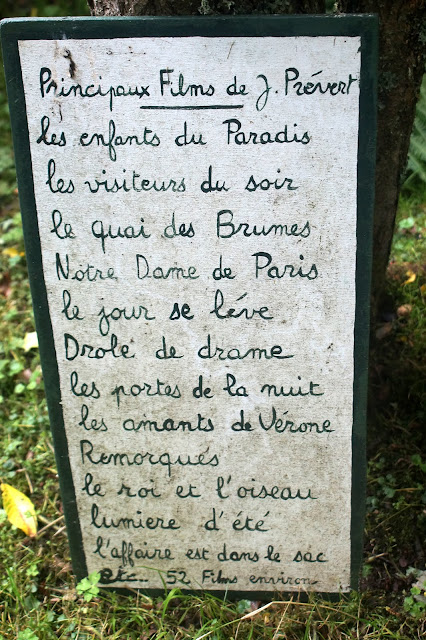 Principaux Films de J. Prévert
les enfants du Paradis
les visiteurs du soir
le quai des Brumes
Notre Dame de Paris
le jour se léve
Drole de drame
les portes de la nuit
les amants de Vérone
Remorqués
le roi et l'oiseau
lumiere d'été
l'affaire est dans le sac
etc... 52 Films environ